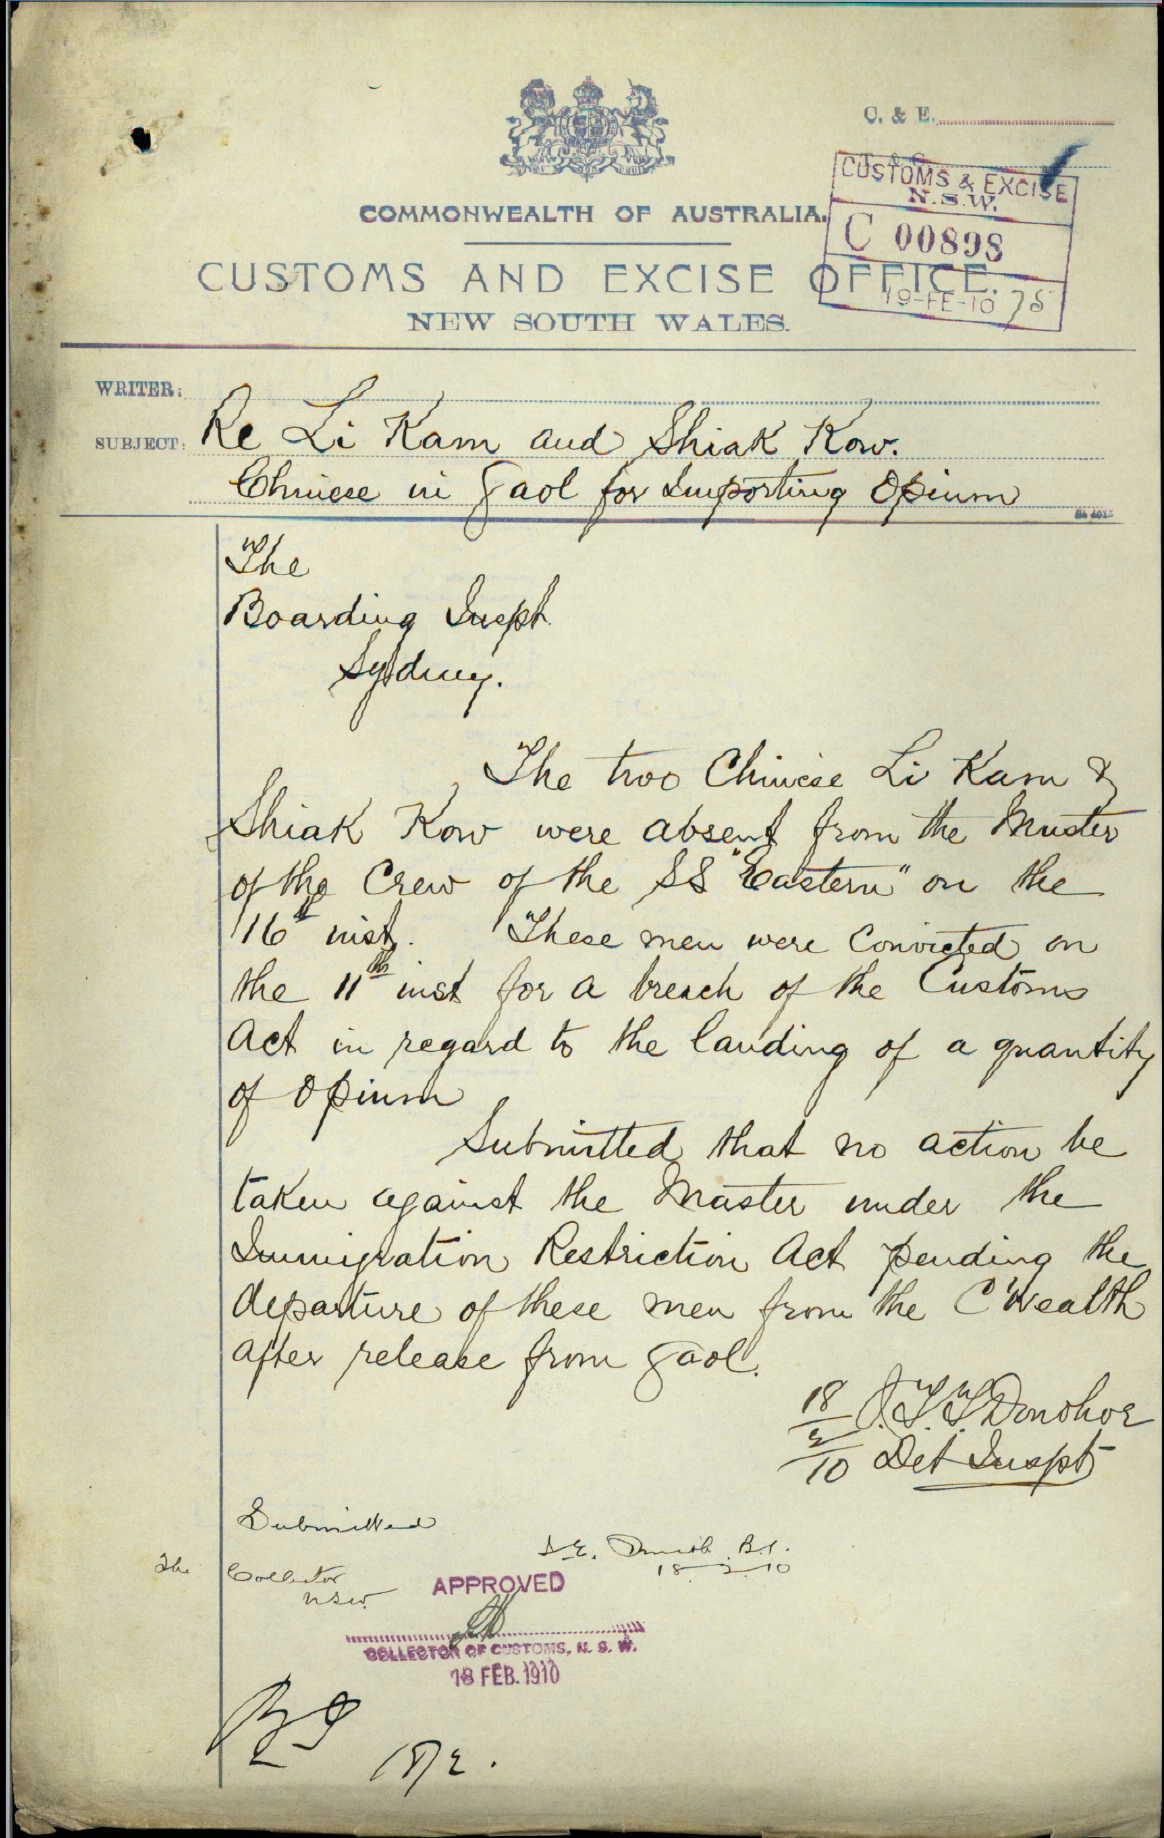 C. & E.
CUSTOMS & EXCISE
N.S.W.
C 00898
19-FE-10 75
COMMONWEALTH OF AUSTRALIA.
CUSTOMS AND EXCISE OFFICE.
NEW SOUTH WALES.
WRITER:
SUBJECT: Re Li Kam and Shiak Kow.
Chinese in Gaol for Importing Opium
The
Boarding Inspt.
Sydney.
The two Chinese Li Kam &
Shiak Kow were absent from the Muster
of the Crew of the SS "Eastern" on the
16th inst. These men were Convicted on
the 11th inst for a breach of the Customs
Act in regard to the landing of a quantity
of Opium
Submitted that no action be
taken against the Master under the
Immigration Restriction Act pending the
departure of these men from the C'Wealth
after release from Gaol.
18/2/10 J.T.T. Donohoe
Det Inspt
Submitted
The Collector
NSW.
B.I.
18.2.10
APPROVED
COLLECTOR OF CUSTOMS, N. S. W.
18 FEB. 1910
BI
18/2.